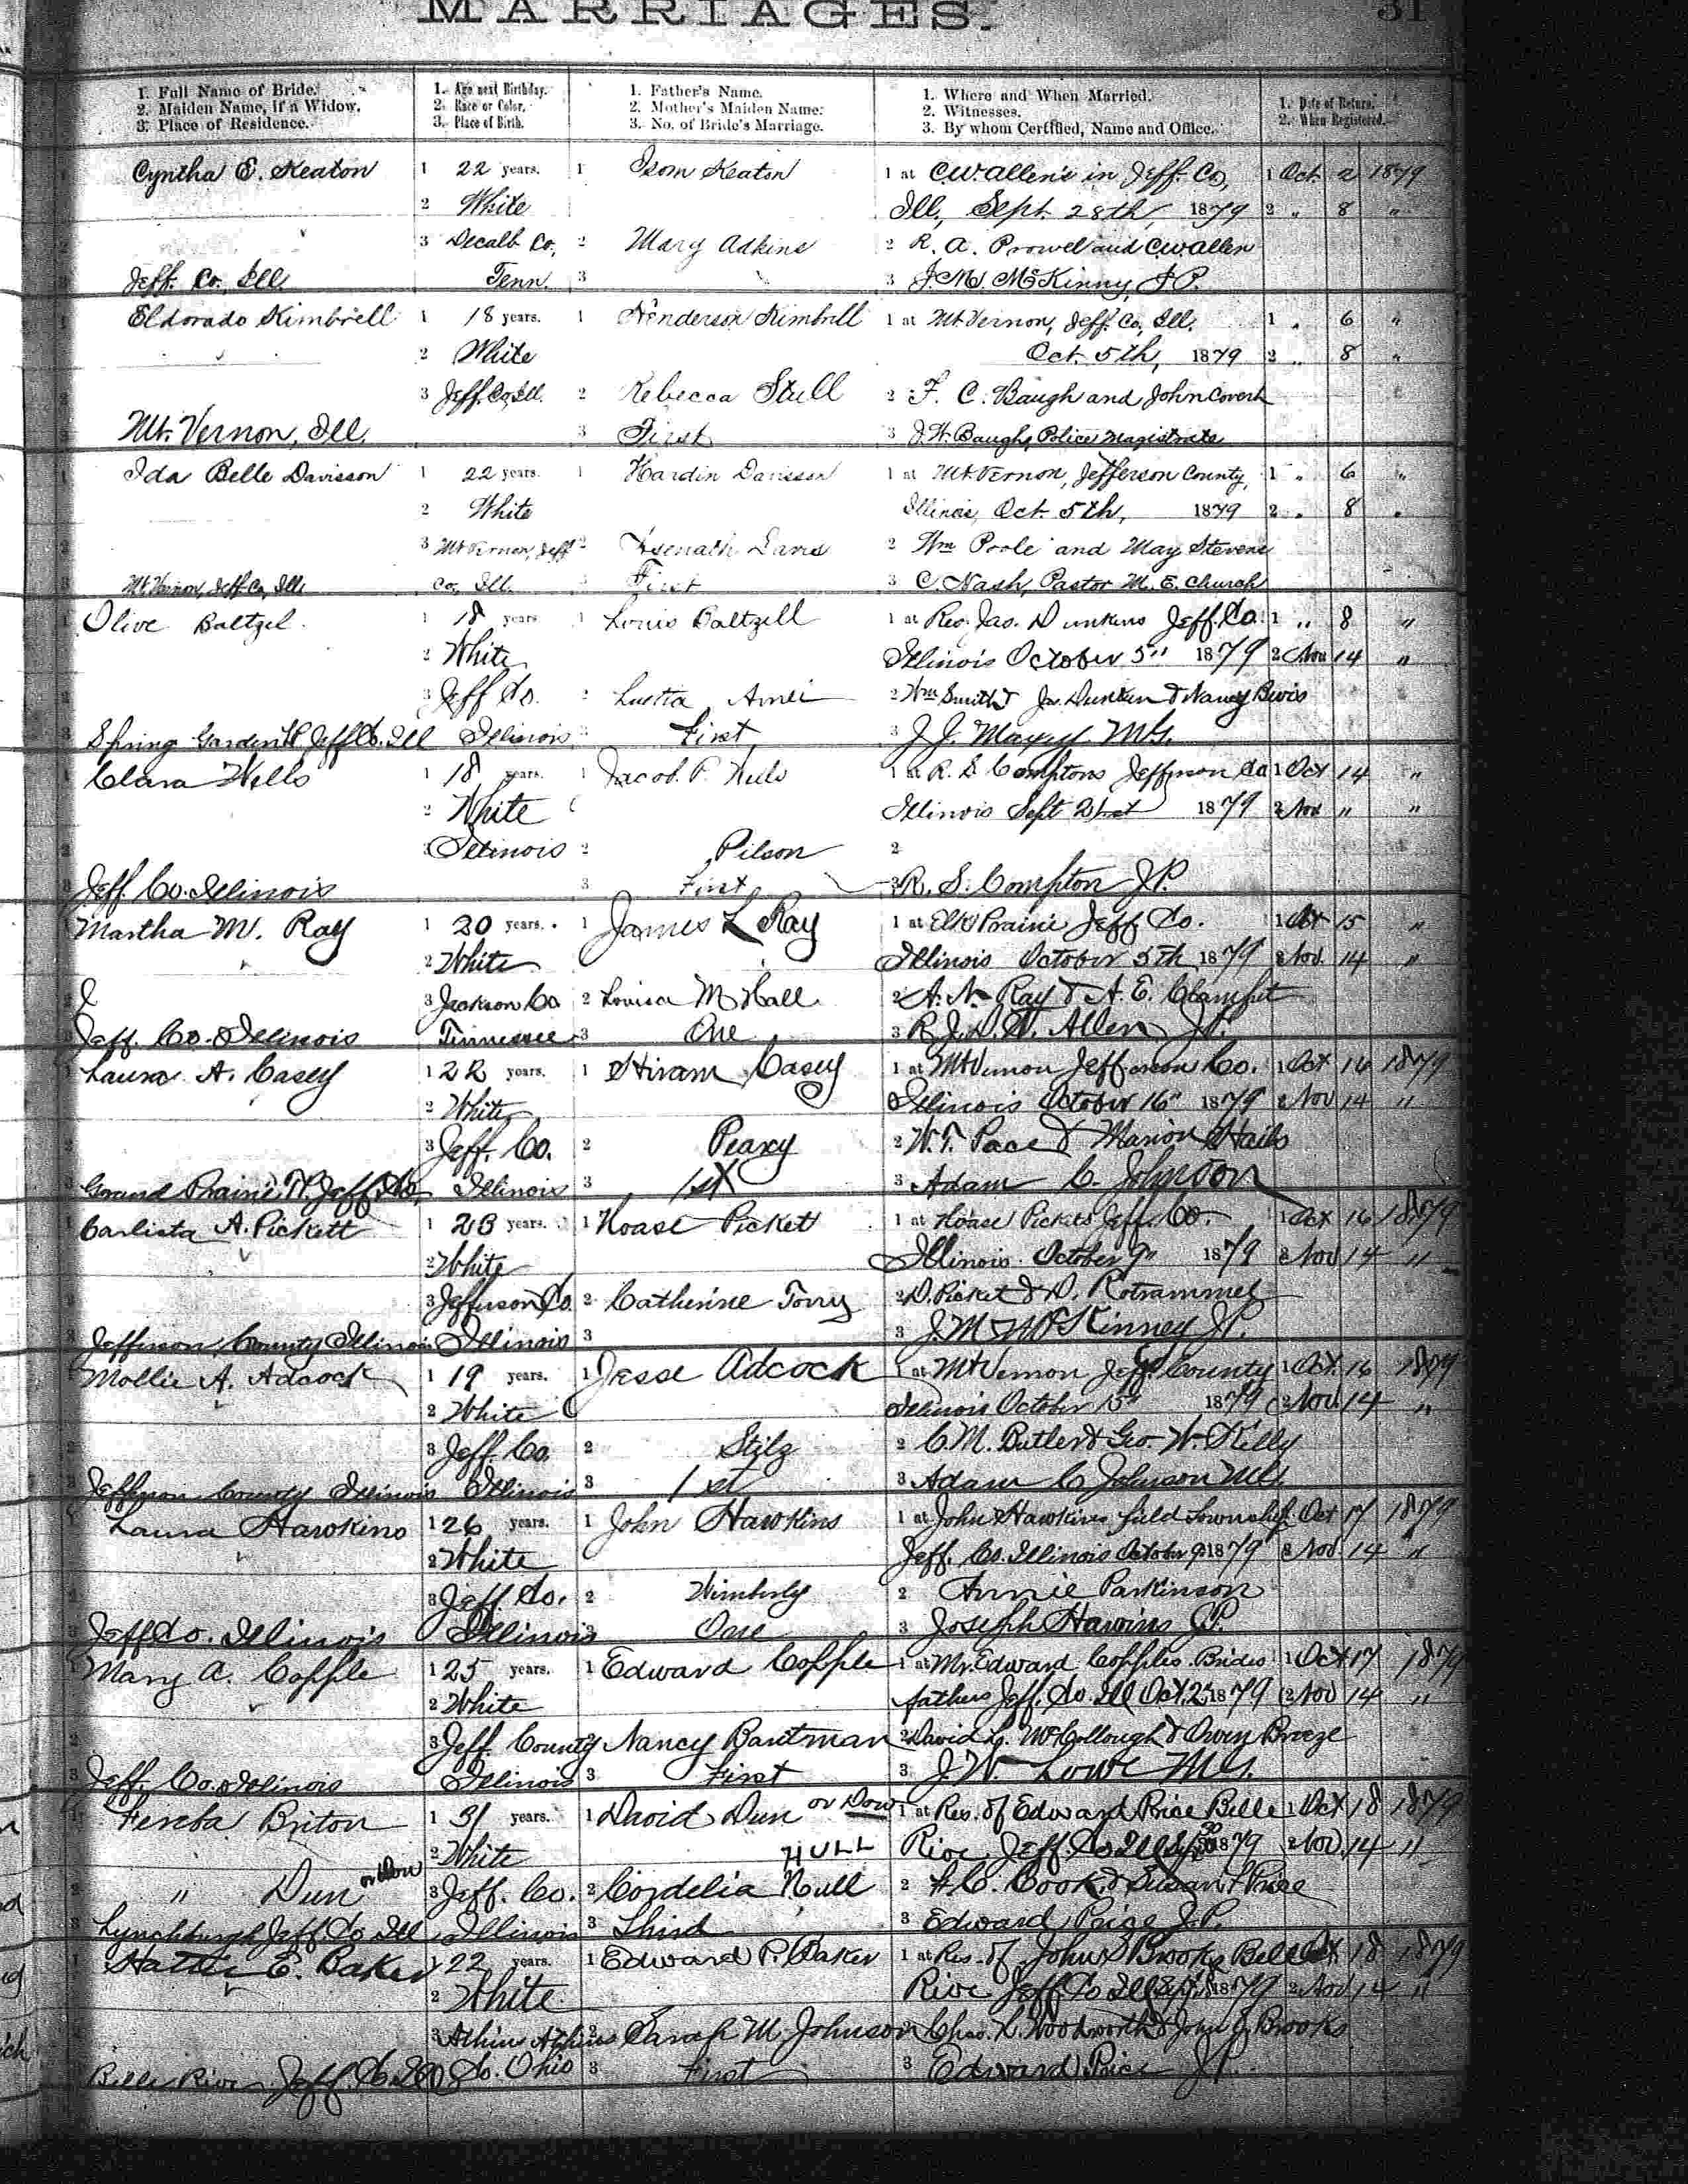 MARRIAGES.
31
1. Full Name of Bride. 1. Age next Birthday. 1. Father's Name. 1. Where and When Married. 1. Date of Return.
2. Maiden Name, if a Widow. 2. Race or Color. 2. Mother's Maiden Name. 2. Witnesses. 2. When Registered.
3. Place of Residence. 3. Place of Birth. 3. No. of Bride's Marriage. 3. By whom Certified, Name and Office.
Cyntha E. Keaton 1 22 years. 1 Isom Keaton 1 at C.W. Allen's in Jeff. Co, 1 Oct. 2 1879
2 White Ill, Sept. 28th, 1879 2 " 8 "
3 Decalb Co, 2 Mary Adkins 2 R. A. Prowel and C.W. Allen
Jeff. Co. Ill Tenn. 3 3 J. M. McKinny, J.P.
Eldorado Kimbrell 1 18 years. 1 Henderson Kimbrell 1 at Mt. Vernon, Jeff. Co, Ill. 1 " 6 "
2 White Oct. 5th, 1879 2 " 8 "
3 Jeff. Co, Ill. 2 Rebecca Stull 2 F. C. Baugh and John Covert
Mt. Vernon, Ill. 3 First 3 J. W. Baugh, Police Magistrate
Ida Belle Davisson 1 22 years. 1 Hardin Davisson 1 at Mt. Vernon, Jefferson County, 1 " 6 "
2 White Illinois, Oct. 5th, 1879 2 " 8 "
3 Mt Vernon, Jeff 2 Asenath Davis 2 Wm Poole and May Stevens
3 Mt. Vernon, Jeff. Co, Ill. Co, Ill. 3 First 3 C. Nash, Pastor M. E. Church
1 Olive Baltzel 1 18 years 1 Louis Baltzell 1 at Res. Jas. Dunkins Jeff. Co. 1 " 8 "
2 White Illinois October 5" 1879 2 Nov 14 "
3 Jeff Co. 2 2 Wm Smith & Jas. Dunken & Nancy Bevis
3 Spring Garden Jeff Co. Ill Illinois 3 First 3 J. J. Maxey M.G.
1 Clara Wells 1 18 years. 1 Jacob P. 1 at R. S. Comptons Jefferson Co 1 Oct 14 "
2 White Illinois Sept 21st 1879 2 Nov " "
3 Illinois 2 Pilson 2
3 Jeff Co. Illinois 3 First 3 R. S. Compton J.P.
Martha M. Ray 1 20 years. 1 James L Ray 1 at Elk Prairie Jeff. Co. 1 Oct 15 "
2 White Illinois October 5th 1879 2 Nov. 14 "
3 Jackson Co 2 Louisa M Hall 2 A. N. Ray & A. E. Clampit
3 Jeff. Co. Illinois Tennessee 3 One 3 R. J. D. W. Allen J.P.
Laura A. Casey 1 22 years. 1 Hiram Casey 1 at Mt Vernon Jefferson Co. 1 Oct 16 1879
2 White Illinois October 16" 1879 2 Nov 14 "
3 Jeff. Co. 2 Peaxy 2 W. T. Pace & Marion
Grand Prairie Tp. Jeff. Co. Illinois 3 1st 3 Adam C. Johnson
1 Carlista A. Pickett 1 23 years. 1 Hoase Pickett 1 at Hoase Pickets Jeff. Co. 1 Oct 16 1879
2 White Illinois. October 9" 1879 2 Nov 14 "
3 Jefferson Co. 2 Catherine Torry 2 D. Picket & D. Rotrammel
3 Jefferson County Illinois Illinois 3 3 J. M McKinney J.P.
1 Mollie A. Adcock 1 19 years. 1 Jesse Adcock 1 at Mt Vernon Jeff. County 1 Oct. 16 1879
2 White Illinois October 15" 1879 2 Nov. 14 "
3 Jeff. Co. 2 Stilz 2 C. M. Butler & Geo. W. Kelly
Jefferson County Illinois Illinois 3 1st 3 Adam C Johnson M.G.
Laura Hawkins 1 26 years. 1 John Hawkins 1 at John Hawkins field Township Oct 17 1879
2 White Jeff. Co. Illinois October 9" 1879 2 Nov. 14 "
3 Jeff Co. 2 Wimberly 2 Annie Parkinson
3 Jeff Co. Illinois Illinois 3 One 3 Joseph Hawins J.P.
Mary A. Copple 1 25 years. 1 Edward Copple 1 at Mr. Edward Copples. Brides 1 Oct 17 1879
2 White fathers Jeff. Co. Ill Oct. 2" 1879 2 Nov 14 "
3 Jeff. County Nancy Bautman 2 David L. McCollough & Owen Breeze
3 Jeff. Co. Illinois Illinois 3 First 3 J. W. Lowe M.G.
Fereba Briton 1 31 years. 1 David Dun or Dow 1 at Res. of Edward Price Belle 1 Oct 18 1879
2 White HULL Rive Jeff. Co Ill 1879 2 Nov. 14 "
" Dun or Dow 3 Jeff. Co. 2 Cordelia Null 2 H. C. Cook & Susan Price
3 Lynchburgh Jeff Co Ill Illinois 3 Third 3 Edward Price J.P.
1 Hattie E. Baker 1 22 years. 1 Edward P. Baker 1 at Res. of John S Brooks Belle Oct. 18 1879
2 White Rive Jeff Co Ill 1879 2 Nov 14 "
3 Athins Athins 2 Sarah M. Johnson 2 Chas. L. Woodworth & John S Brooks
Belle Rive. Jeff. Co. Ill Co. Ohio 3 First 3 Edward Price J.P.